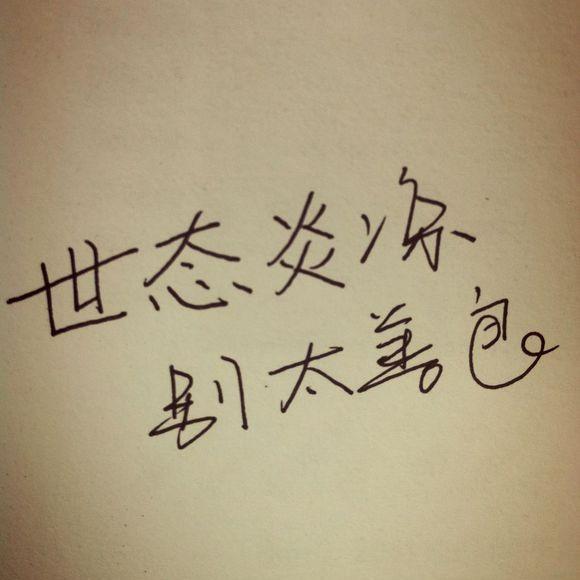 世态炎凉
别太善包